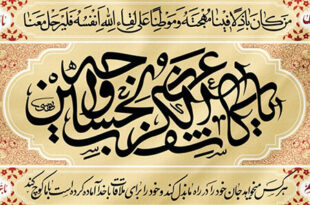 من کان باذلا فینا مهجته و موطنا علی لقاء الله نفسه فلیرحل معنا
یا کاشف الکرب عن وجه الحسین
هر کس میخواهد جان خود را در راه ما بذل کند و خود را برای ملاقات با خدا آماده کرده است با ما کوچ کند